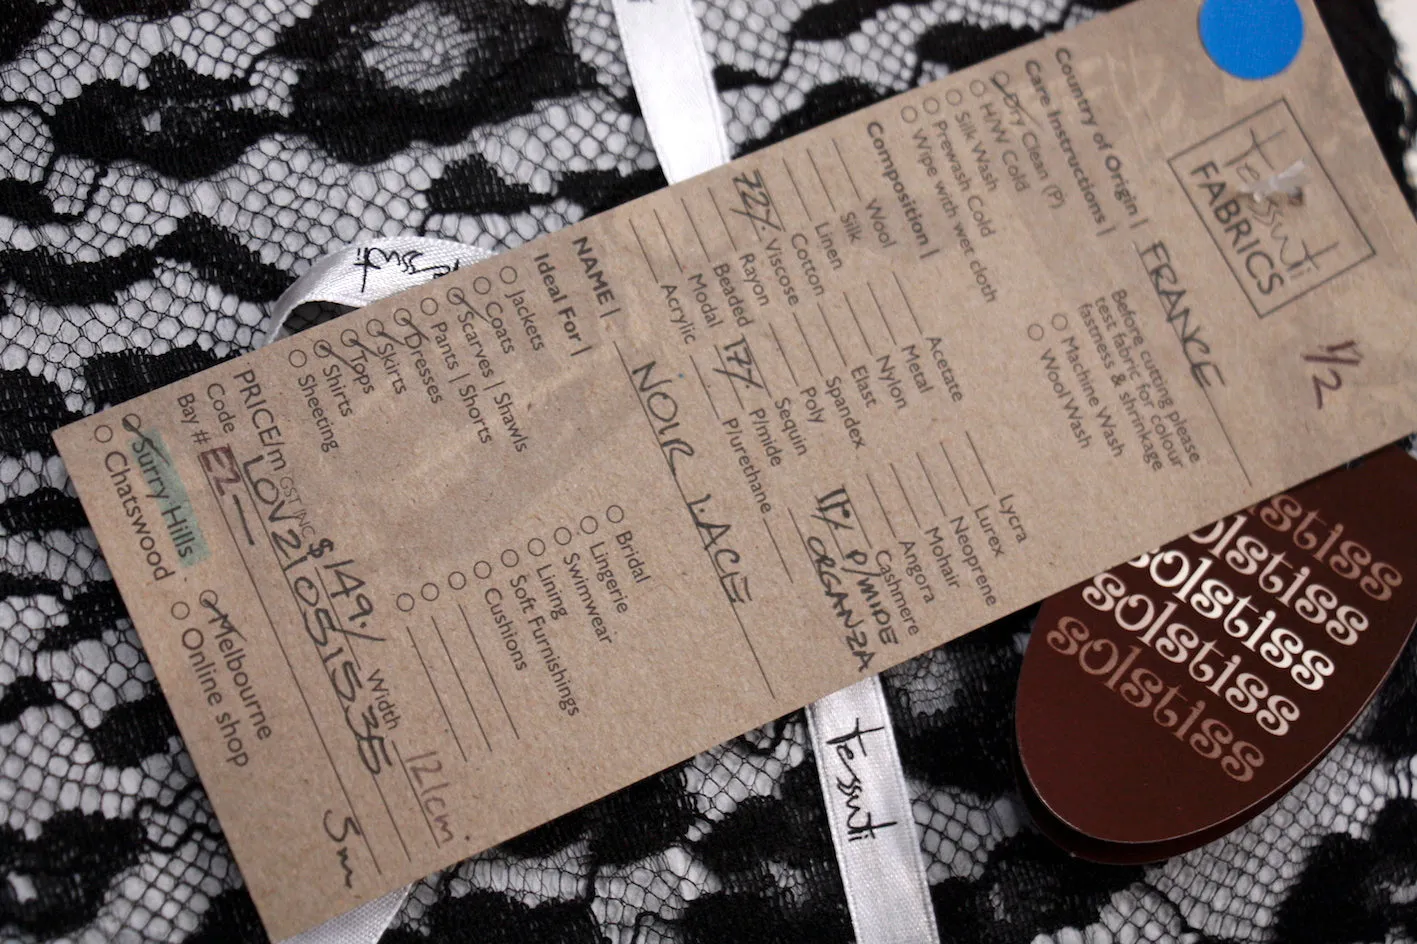 tessuti
FABRICS
1/2
Country of Origin | FRANCE
Care Instructions |
Before cutting please
test fabric for colour
fastness & shrinkage
Dry Clean (P)
H/W Cold
Silk Wash
Prewash Cold
Wipe with wet cloth
Machine Wash
Wool Wash
Composition |
Wool
Silk
Linen
Cotton
72% Viscose
Rayon
Beaded
Modal
Acrylic
Acetate
Metal
Nylon
Elast
Spandex
Poly
Sequin
17% P/mide
P/urethane
Lycra
Lurex
Neoprene
Mohair
Angora
Cashmere
11% P/MIDE
ORGANZA
NAME | NOIR LACE
Ideal For |
Jackets
Coats
Scarves | Shawls
Pants | Shorts
Dresses
Skirts
Tops
Shirts
Sheeting
Bridal
Lingerie
Swimwear
Lining
Soft Furnishings
Cushions
PRICE/m GST INC $149./ Width 121cm
Code LOV21051535
Bay # E2
5m
Surry Hills
Chatswood
Melbourne
Online shop
tessuti
tessuti
solstiss
solstiss
solstiss
solstiss
solstiss